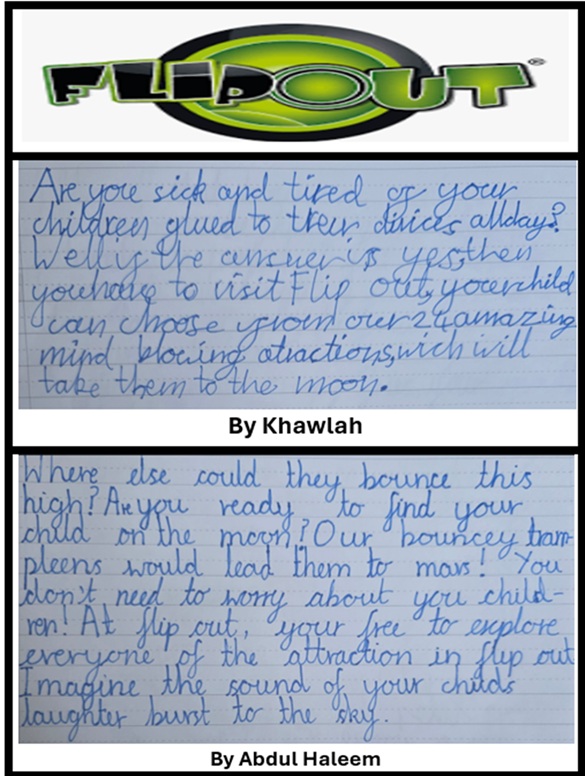 FLIPOUT®
Are you sick and tired of your
children glued to their divices allday?
Well if the answer is yes, then
you have to visit Flip out, your child
can choose from our 24 amazing
mind blowing atractions, wich will
take them to the moon.
By Khawlah
Where else could they bounce this
high? Are you ready to find your
child on the moon? Our bouncey tram-
pleens would lead them to mars! You
don't need to worry about you child-
ren! At flip out, your free to explore
everyone of the attraction in flip out
Imagine the sound of your childs
laughter burst to the sky.
By Abdul Haleem